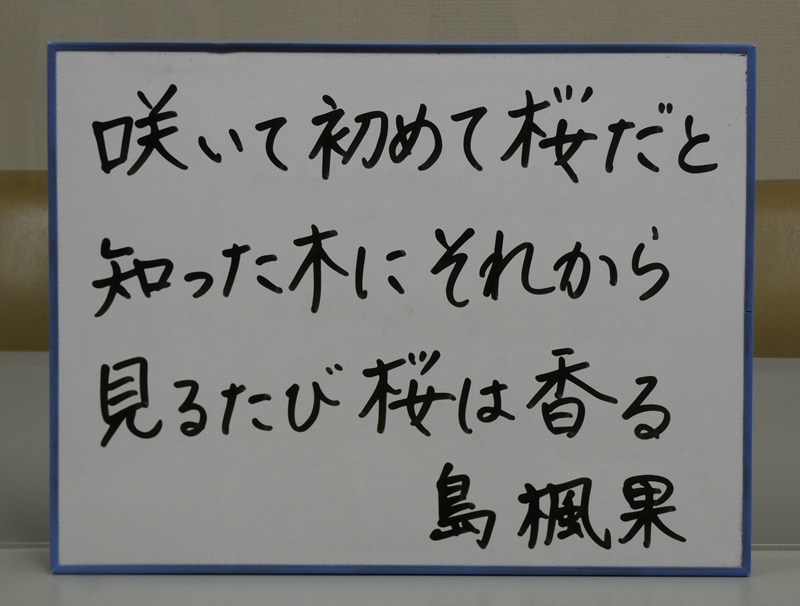 咲いて初めて桜だと
知った木にそれから
見るたび桜は香る
島楓果